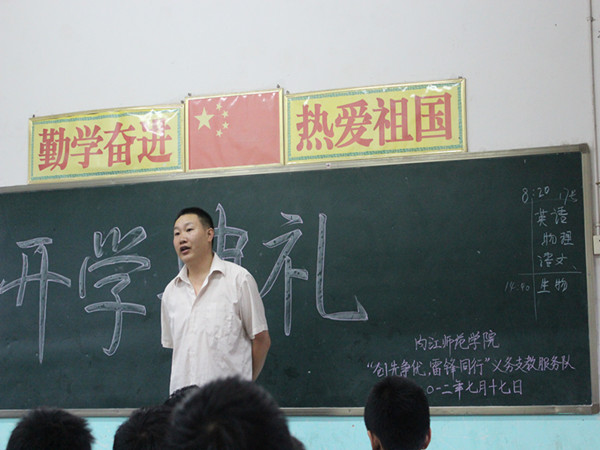 勤学奋进
热爱祖国
开学典礼
8:20 17号
英语
物理
语文
14:40 生物
内江师范学院
“创先争优、雷锋同行”义务支教服务队
二〇一二年七月十七日